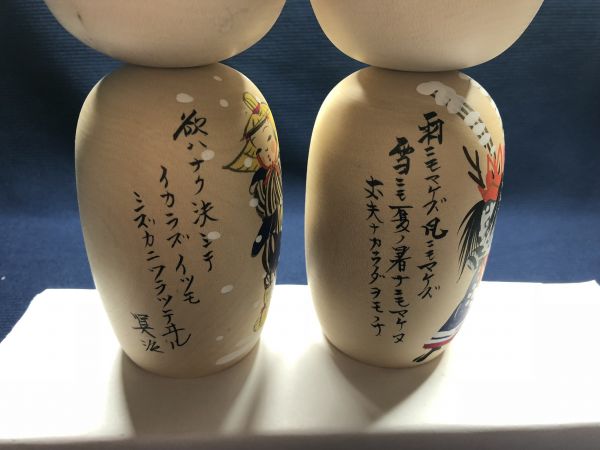 雨ニモマケズ凡ニモマケズ
雪ニモ夏ノ暑サニモマケヌ
丈夫ナカラダヲモッテ
欲ハナク決シテ
イカラズイツモ
シズカニワラッテ丮ル